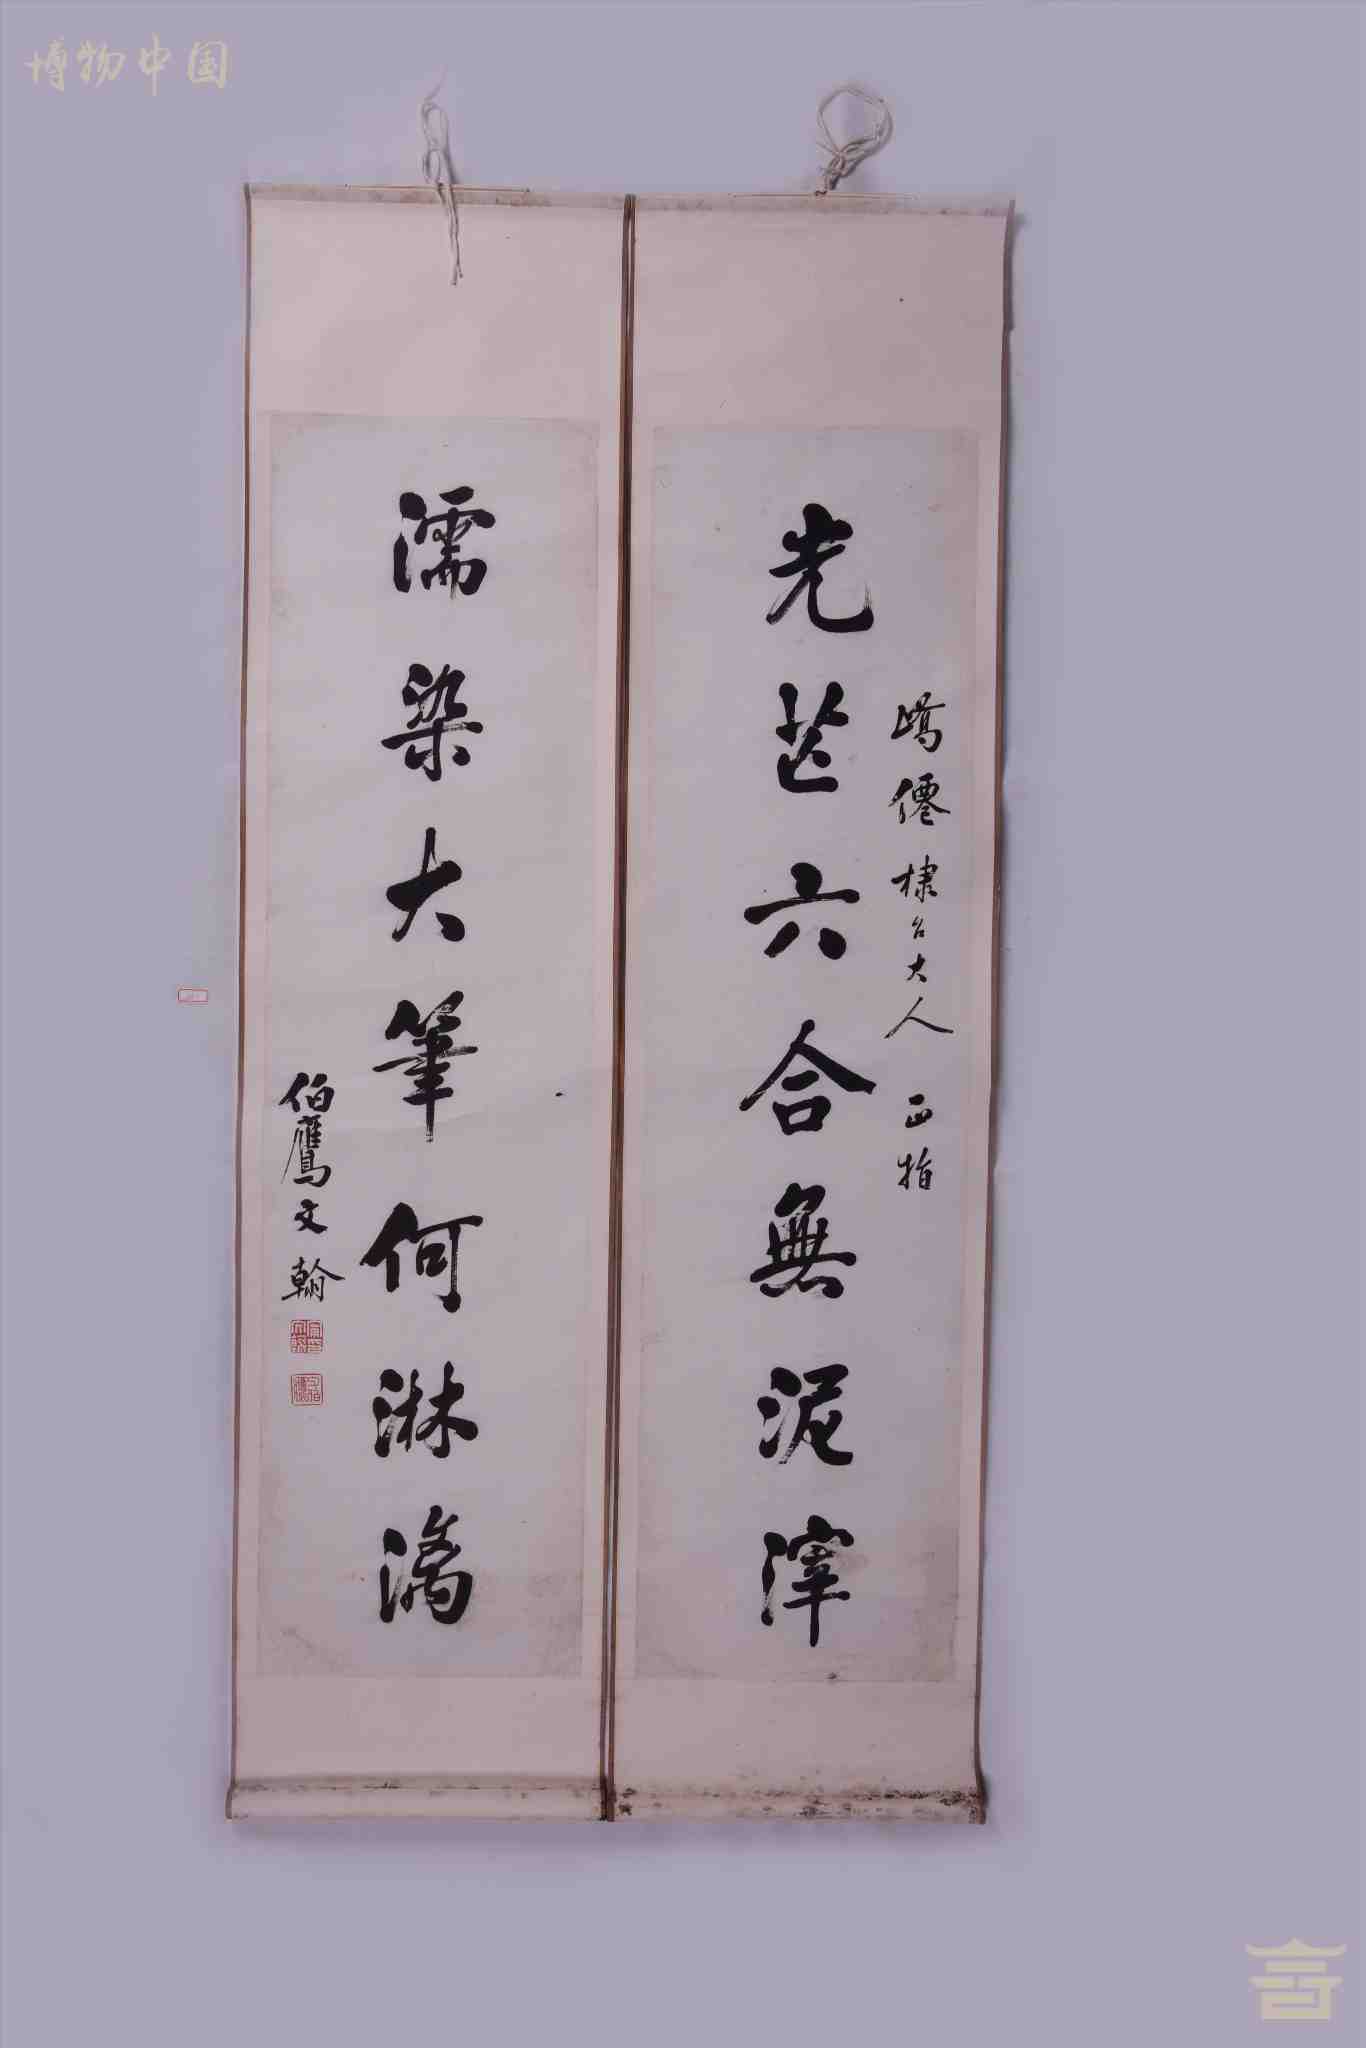 博物中国
光芒六合無泥滓
嶠僊棣台大人 正指
濡染大筆何淋漓
伯鷹文翰